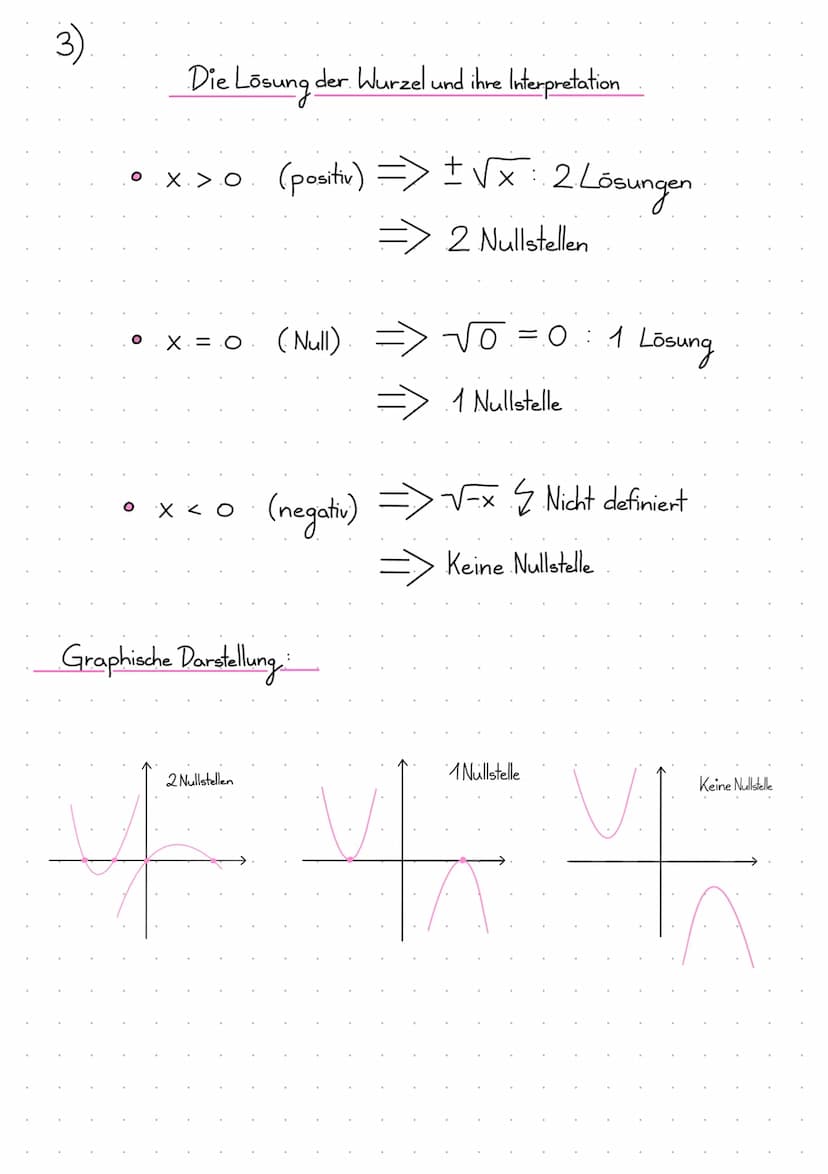 3)
Die Lösung der Wurzel und ihre Interpretation
• x > 0 (positiv) => ± √x : 2 Lösungen
=> 2 Nullstellen
• x = 0 (Null) => √0 = 0 : 1 Lösung
=> 1 Nullstelle
• x < 0 (negativ) => √-x ↯ Nicht definiert
=> Keine Nullstelle
Graphische Darstellung:
2 Nullstellen
1 Nullstelle
Keine Nullstelle